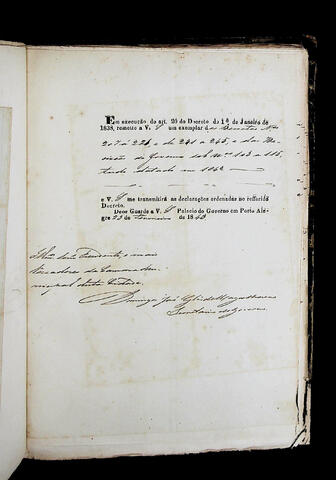 Em execução do art. 20 do Decreto do 1º de Janeiro de
1838, remetto a V. S um exemplar d
207 a 226, e de 241 a 245, e das De-
cisões do Governo sob Nos 103 a 115,
tudo datado em 1842
e V. S me transmittirá as declarações ordenadas no referido
Decreto.
Deos Guarde a V. S Palacio do Governo em Porto Ale-
gre 23 de Fevereiro de 1843
Presidente, e mais
Vereadores da Camara Mu-
nicipal desta Cidade.
Domingos José de Magalhaens
Secretario do Governo